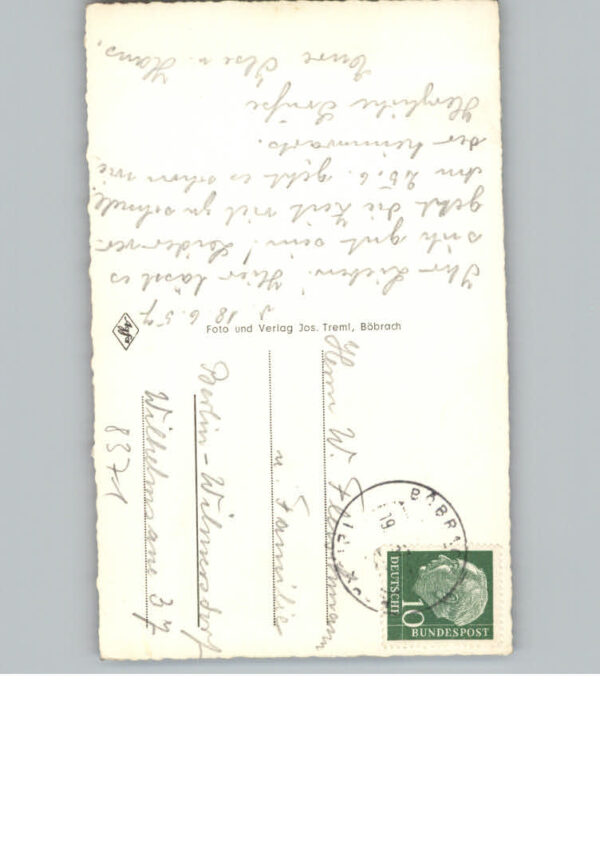 d. 18.6.57
Ihr Lieben! Hier lässt es
sich gut sein! Leider ver-
geht die Zeit viel zu schnell.
Am 25.6. geht es schon wie
der heimwärts.
Herzliche Grüße
Eure Ilse u. Hans.
Agfa
Foto und Verlag Jos. Treml, Böbrach
Herrn W. Fleischmann
u. Familie
Berlin-Wilmersdorf
Wilhelmsaue 37
8371
BÖBRAC
19
10
DEUTSCHE
BUNDESPOST